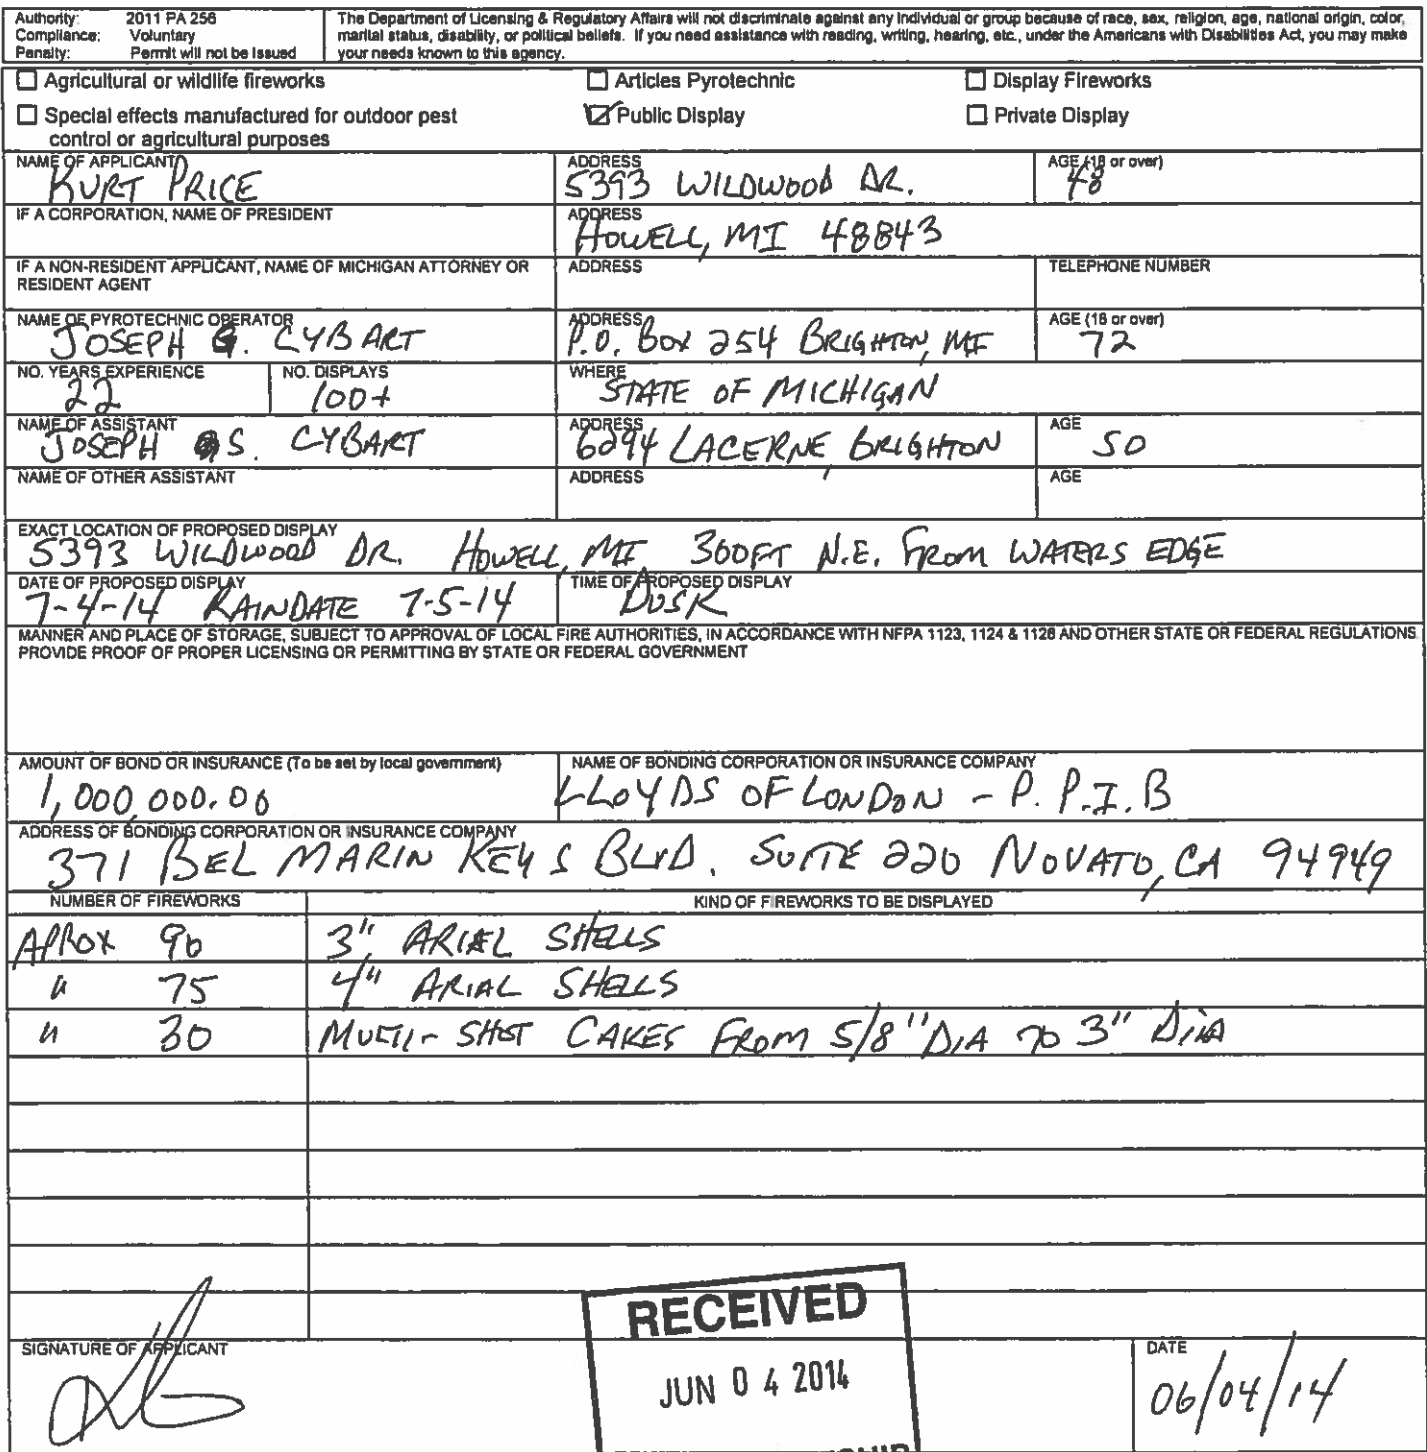 Authority: 2011 PA 256
Compliance: Voluntary
Penalty: Permit will not be issued
The Department of Licensing & Regulatory Affairs will not discriminate against any individual or group because of race, sex, religion, age, national origin, color,
marital status, disability, or political beliefs. If you need assistance with reading, writing, hearing, etc., under the Americans with Disabilities Act, you may make
your needs known to this agency.
Agricultural or wildlife fireworks Articles Pyrotechnic Display Fireworks
Special effects manufactured for outdoor pest Public Display Private Display
control or agricultural purposes
NAME OF APPLICANT ADDRESS AGE (18 or over)
KURT PRICE 5393 WILDWOOD DR. 48
IF A CORPORATION, NAME OF PRESIDENT ADDRESS
HOWELL, MI 48843
IF A NON-RESIDENT APPLICANT, NAME OF MICHIGAN ATTORNEY OR ADDRESS TELEPHONE NUMBER
RESIDENT AGENT
NAME OF PYROTECHNIC OPERATOR ADDRESS AGE (18 or over)
JOSEPH G. CYBART P.O. BOX 254 BRIGHTON, MI 72
NO. YEARS EXPERIENCE NO. DISPLAYS WHERE
22 100+ STATE OF MICHIGAN
NAME OF ASSISTANT ADDRESS AGE
JOSEPH S. CYBART 6294 LACERNE, BRIGHTON 50
NAME OF OTHER ASSISTANT ADDRESS AGE
EXACT LOCATION OF PROPOSED DISPLAY
5393 WILDWOOD DR. HOWELL, MI 300FT N.E. FROM WATERS EDGE
DATE OF PROPOSED DISPLAY TIME OF PROPOSED DISPLAY
7-4-14 RAINDATE 7-5-14 DUSK
MANNER AND PLACE OF STORAGE, SUBJECT TO APPROVAL OF LOCAL FIRE AUTHORITIES, IN ACCORDANCE WITH NFPA 1123, 1124 & 1126 AND OTHER STATE OR FEDERAL REGULATIONS
PROVIDE PROOF OF PROPER LICENSING OR PERMITTING BY STATE OR FEDERAL GOVERNMENT
AMOUNT OF BOND OR INSURANCE (To be set by local government) NAME OF BONDING CORPORATION OR INSURANCE COMPANY
1,000,000.00 LLOYDS OF LONDON - P.P.I.B
ADDRESS OF BONDING CORPORATION OR INSURANCE COMPANY
371 BEL MARIN KEYS BLVD. SUITE 220 NOVATO, CA 94949
NUMBER OF FIREWORKS KIND OF FIREWORKS TO BE DISPLAYED
APROX 90 3" ARIEL SHELLS
" 75 4" ARIAL SHELLS
" 30 MULTI-SHOT CAKES FROM 5/8" DIA TO 3" DIA
RECEIVED
JUN 04 2014
SIGNATURE OF APPLICANT DATE
06/04/14